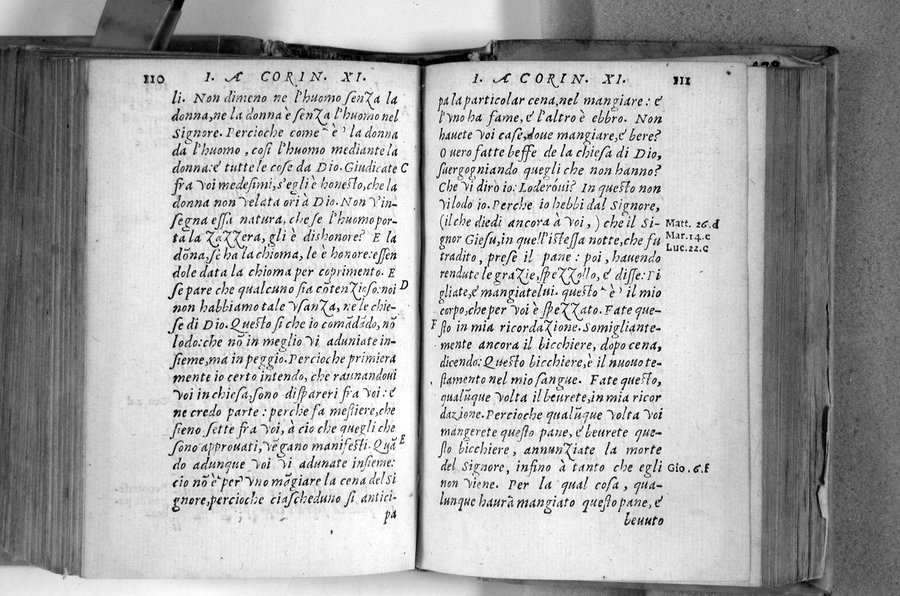 310 I. A CORIN. XI.
li. Non dimeno ne l'huomo senza la
donna, ne la donna è senza l'huomo nel
Signore. Percioche come è la donna
da l'huomo, così l'huomo mediante la
donna: e tutte le cose da Dio. Giudicate C
fra voi medesimi, s'egli è honesto, che la
donna non velata ori à Dio. Non v'in-
segna essa natura, che se l'huomo por-
ta la zazzera, gli è dishonore? E la
dõna, se hà la chioma, le è honore: essen
dole data la chioma per coprimento. E
se pare che qualcuno sia cõtenzioso: noi D
non habbiamo tale vsanza, ne le chie-
se di Dio. Questo si che io comãdãdo, nõ
lodo: che nõ in meglio vi aduniate in-
sieme, ma in peggio. Percioche primiera
mente io certo intendo, che raunandoui
voi in chiesa, sono dispareri fra voi: e
ne credo parte: perche fa mestiere, che
sieno sette fra voi, à cio che quegli che
sono approuati, vẽgano manifesti. Quã E
do adunque voi vi adunate insieme:
cio nõ è per vno mãgiare la cena del Si
gnore, percioche ciascheduno si antici-
pa
I. A CORIN. XI. 311
pa la particolar cena, nel mangiare: e
l'vno ha fame, e l'altro è ebbro. Non
hauete voi case, doue mangiare, e bere?
O vero fatte beffe de la chiesa di Dio,
suergogniando quegli che non hanno?
Che vi dirò io: Loderóui? In questo non
vi lodo io. Perche io hebbi dal Signore,
(il che diedi ancora à voi,) che il Si- Matt. 26.d
gnor Giesu, in quell'istessa notte, che fu Mar. 14.c
tradito, prese il pane: poi, hauendo Luc. 22.c
rendute le grazie, spezzollo, e disse: Pi
gliate, e mangiatelui. questo è il mio
corpo, che per voi è spezzato. Fate que-
F sto in mia ricordazione. Somigliante-
mente ancora il bicchiere, dopo cena,
dicendo: Questo bicchiere, è il nuouo te-
stamento nel mio sangue. Fate questo,
qualũque volta il beurete, in mia ricor
dazione. Percioche qualũque volta voi
mangerete questo pane, e beurete que-
sto bicchiere, annunziate la morte
del Signore, infino à tanto che egli Gio. 6.f
non viene. Per la qual cosa, qua-
lunque haurà mangiato questo pane, e
beuuto